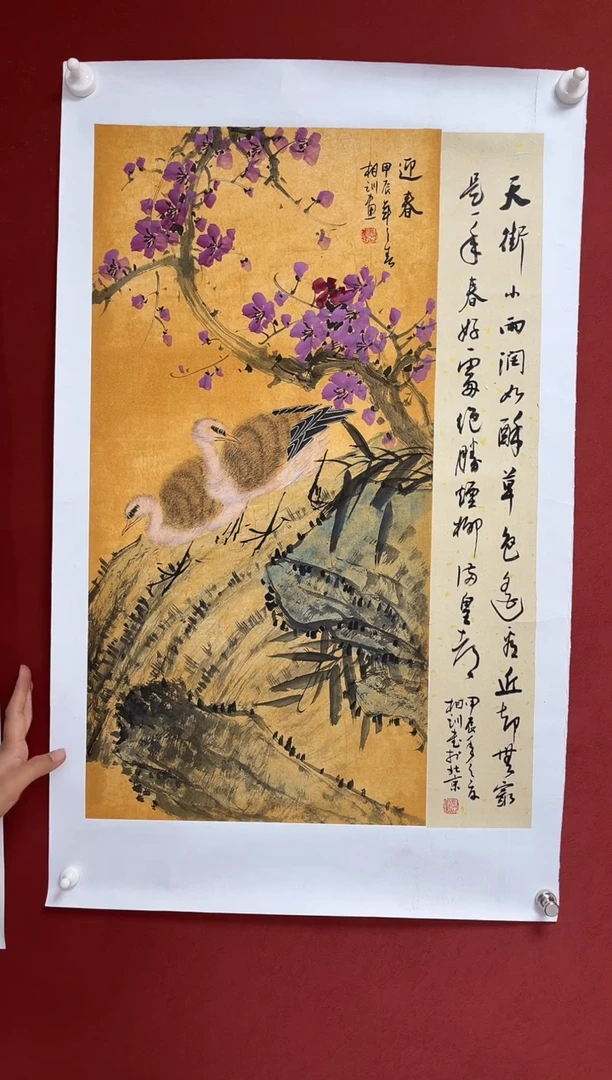 天街小雨润如酥草色遥看近却無最
是一年春好處绝勝煙柳满皇都
甲辰年之夏
相训书於北京
迎春
甲辰年之春
相训画